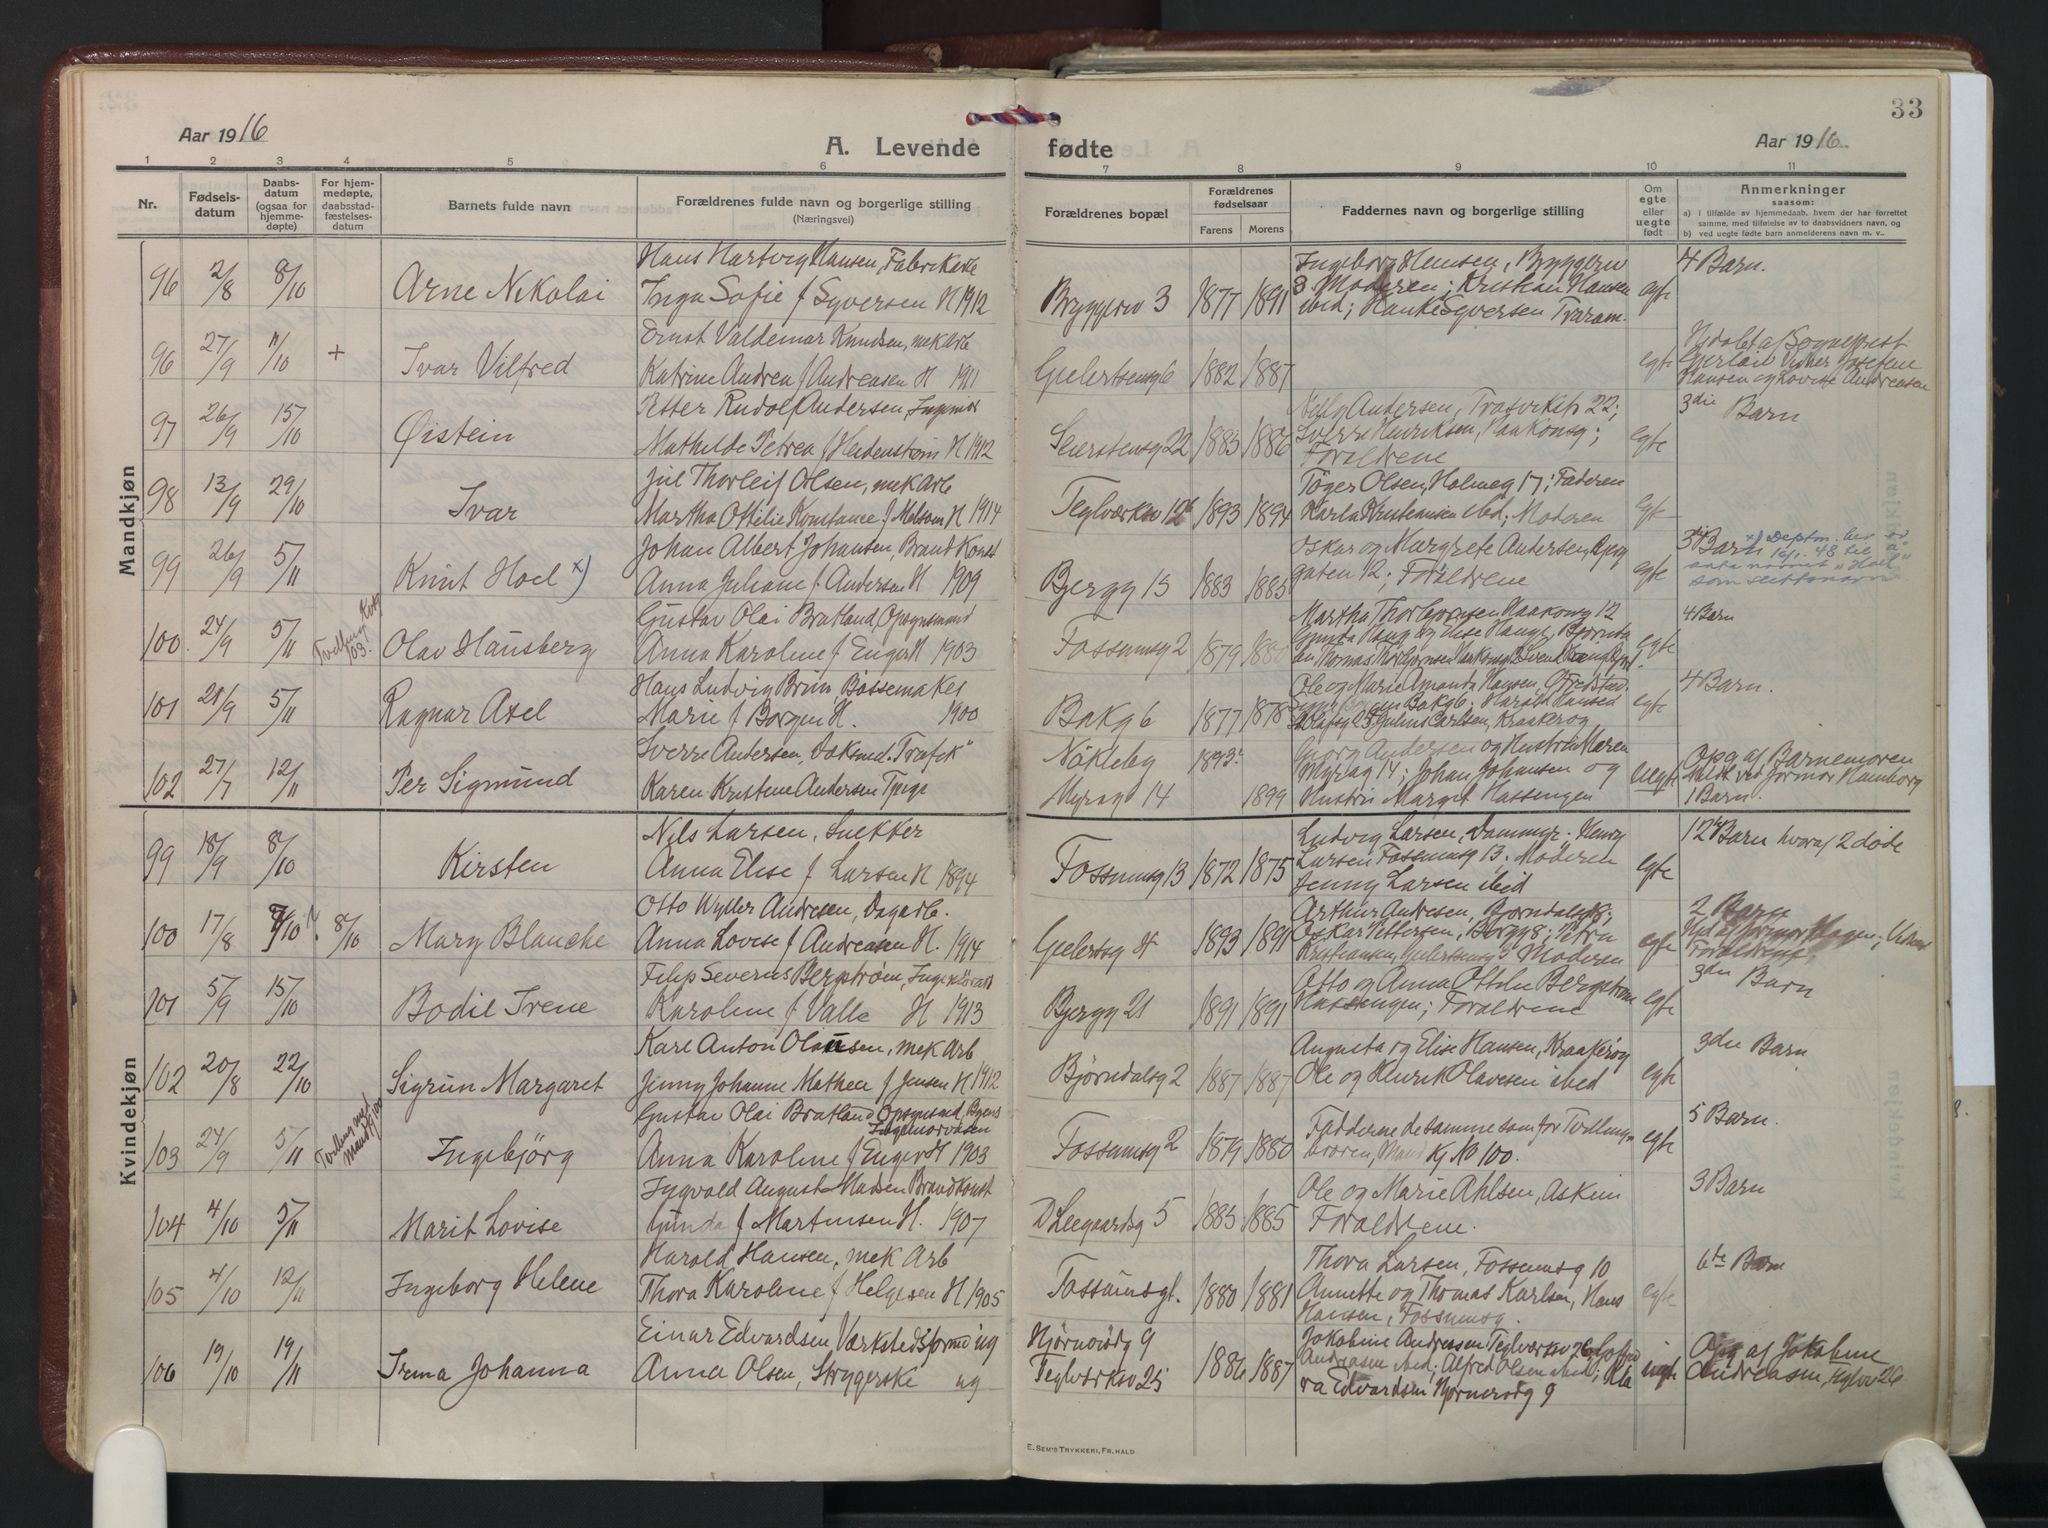 Aar 1916
A. Levende
fødte
Aar 1916
33
1 2 3 4 5 6 7 8 9 10 11
Nr.
Fødsels-
datum
Daabs-
datum
(ogsaa for
hjemme-
døpte)
For hjem-
medøpte,
daabsstad-
fæstelses-
datum
Barnets fulde navn
Forældrenes fulde navn og borgerlige stilling
(Næringsvei)
Forældrenes bopæl
Forældrenes
fødselsaar
Farens Morens
Faddernes navn og borgerlige stilling
Om
egte
eller
uegte
født
Anmerkninger
saasom:
a) i tilfælde av hjemmedaab, hvem der har forrettet
samme, med tilføielse av to daabsvidners navn, og
b) ved uegte fødte barn anmelderens navn m. v..
Mandkjøn
96 2/8 8/10 Arne Nikolai
Hans Hartvig Hansen, Fabrikeie
Inga Sofie f Syversen H 1912
Bryggerv 3 1877 1891
Ingeborg Hansen, Bryggerv
3 Moderen; Kristian Hansen
ibid; Syversen
egte
4 Barn.
96 27/9 11/10 + Ivar Vilfred
Ernst Valdemar Knudsen, mek Arb
Katrine Andrea f Andreasen H 1911
Gielertsensg 6 1882 1887
egte
Hjdøbt af Sogneprest
Hansen og Lovise Andreasen
97 26/9 15/10 Øistein
Petter Rudolf Andersen, Ingeniør
Mathilde Petrea f Heidenstrøm H 1912
Seierstensg 22 1883 1886
Nelly Andersen, Trosvikstr 22;
Sverre Henriksen, Haakonsg;
Forældrene
egte
3die Barn
98 13/9 29/10 Ivar
Jul Thorleif Olsen, mek Arb
Martha Ottilie Konstance f H 1914
1893 1894
Olsen, Holmeg 17; Faderen
Karla Kristiansen ibid; Moderen
egte
99 26/9 5/11 Knut Hoel x)
Johan Albert Johansen, Brand Konst
Anna Juliane f Andersen H 1909
Bjergg 15 1883 1885
Oskar og Margrete Andersen,
gaten 12; Forældrene
egte
3die Barn x) Deptm. bev
16/1. 48 til å
anta navnet „Hoel“
som slektsnavn
100. 24/9 5/11 Tvilling Kvkj
103. Olav Hausberg
Gustav Olai Bratland, Opsynsmand
Anna Karoline f Enger H 1903
Fossumsg 2 1879 1880
Martha Thorbjørnsen Haakonsg 12
og Else Hauge, Bjørnda
Thomas Thorbjørnsen
egte
4 Barn
101 28/9 5/11 Ragnar Axel
Hans Ludvig Brun Bøssemaker
Marie f Borgen H. 1900
Bakg 6 1877 1878
Ole og Marie Amanda Hansen, Fredstad.
Bakg 6; Harald Hansen
Julius Carlsen, Kraakerøg
egte
4 Barn.
102 27/7 12/11 Per Sigmund
Sverre Andersen,
Karen Kristine Andersen Tpige
Nökleby 1893
Myrag 14 1899
Georg Andersen og Hustru Maren
Myrag 14; Johan Johansen og
Hustru Margit Hassengen
uegte
Opg af Barnemoren
Meldt ved Jormor Hamborg
1 Barn.
Kvindekjøn
99 18/9 8/10 Kirsten
Nils Larsen, Snekker
Anna Elise f Larsen H 1894
Fossumsg 13 1872 1875
Ludvig Larsen, Dammyr. Henry
Larsen Fossumsg 13. Moderen
Jenny Larsen ibid
egte
12te Barn hvoraf 2 døde
100 17/8 8/10 Mary Blanche
Otto Wyller Andresen, Dagarb.
Anna Lovise f Andreasen H. 1914
1893 1891
Arthur Andresen, Bjørndalsg 8;
Oskar Pettersen, Borgg 8; Petra
Kristiansen, Gielertsensg 5 Moderen
egte
2 Barn
Hjd af Jormor Hagen;
Forældrene
101 5/9 15/10 Bodil Irene
Filip Severus Bergstrøm,
Karoline f Valle H 1913
Bjergg 21 1891 1891
Otto og Anna Ottilie Bergstrøm
Hassengen; Forældrene
egte
3die Barn
102 20/8 22/10 Sigrun Margaret
Karl Anton Olausen, mek Arb
Jenny Johanne Mathea f Jensen H 1912
Bjørndalsg 2 1887 1887
Augusta og Elise Hansen, Kraakerøg
Ole og Henrik Olavesen ibid
egte
3die Barn
103 24/9 5/11 Tvilling med
Mandkj 100 Ingebjörg
Gustav Olai Bratland Opsynsmd, Byens
Ingeniørvæsen
Anna Karoline f Enger H 1903
Fossumsg 2 1879 1880
Fadderne de samme som for Tvilling
broren, Mand Kj No 100.
egte
5 Barn.
104 4/10 5/11 Marit Lovise
Ingvald August Madsen Brandkonst
Gunda f Martinsen H. 1907
D Leegaardsg 5 1885 1885
Ole og Marie Ahlsen, Askim
Forældrene.
3 Barn
105 4/10 12/11 Ingeborg Helene
Harald Hansen, mek Arb
Thora Karoline f Helgesen H 1905
1880 1881
Thora Larsen, Fossumsg 10
Annette og Thomas Karlsen, Hans
Hansen, Fossumsg.
egte
6te Barn
106 19/10 19/11 Irma Johanna
Einar Edvardsen Værkstedsformd ug
Anna Olsen, Strygerske ug
Hjørnerødg 9
Teglverksv 25 1886 1887
Jakobine Andreassen Teglverksv 26
Andreasen ibid; Alfred Olsen ibid; Kla
ra Edvardsen Hjørnerødg 9
uegte
Opg af Jakobine
Andreasen, Teglvv 26
E. SEM'S TRYKKERI, FR.HALD